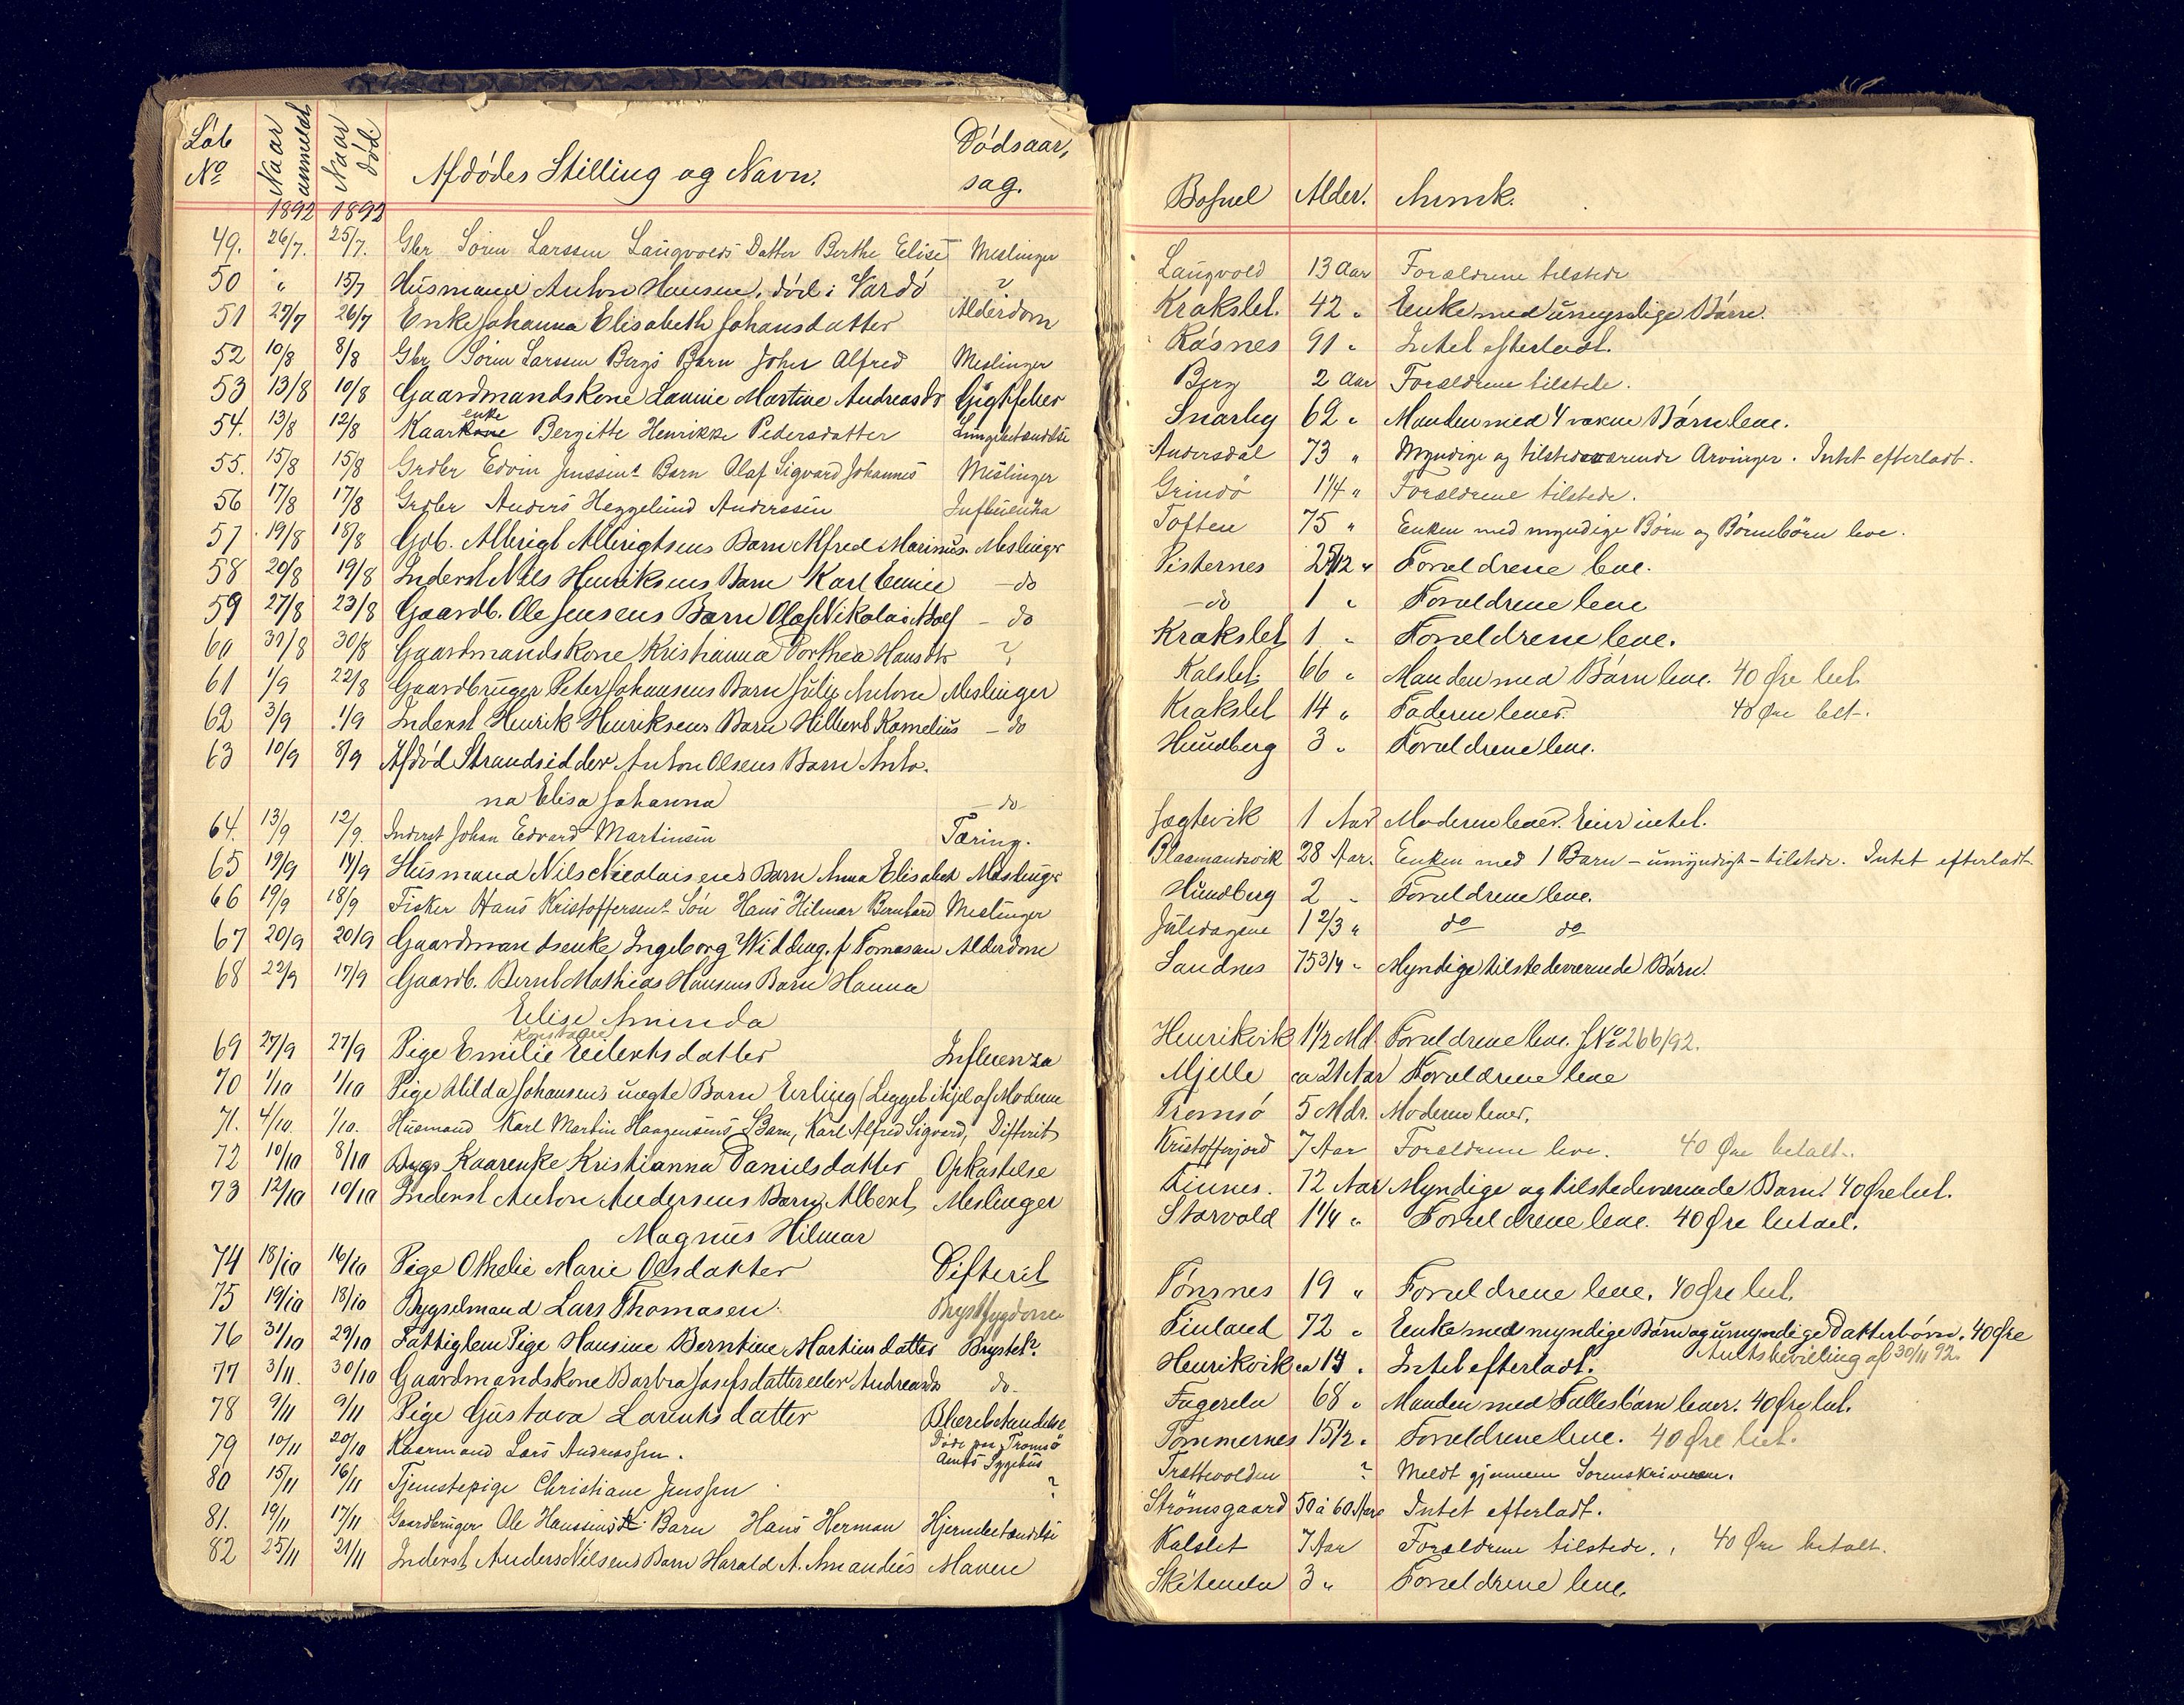 Løb No Naar anmeldt Naar død. Afdødes Stilling og Navn. Dødsaarsag.
1892 1892
49. 26/7. 25/7. Gbr Søren Larssen Laugvolds Datter Berthe Elise Meslinger
50 " 15/7 Husmand Anton Hansen, død i Vardö ?
51 27/7 26/7 Enke Johanna Elisabeth Johansdatter Alderdom
52 10/8 8/8 Gbr Sören Larssen Bergs Barn Johan Alfred Meslinger
53 13/8 10/8 Gaardmandskone Lannie Martine Andreasdr Gigtfeber
54. 13/8 12/8 Kaarenke Bergitte Henrikke Pedersdatter Lungebetændelse
55. 15/8 15/8 Grdbr Edvin Jenssens Barn Olaf Sigvard Johannes Meslinger
56 17/8 17/8 Grdbr Anders Heggelund Anderssen Influenza
57 19/8 18/8 Gdb. Albrigt Albrigtsens Barn Alfred Marinus. Meslinger
58 20/8 19/8 Inderst Nils Henriksens Barn Karl - do
59 27/8 23/8 Gaardb. Ole Jensens Barn Olaf Nikolai Adolf - do
60 31/8 30/8 Gaardmandskone Kristianna Dorthea Hansdtr ?
61 1/9 22/8 Gaardbruger Peter Johansens Barn Julie Antone Meslinger
62 3/9 1/9 Inderst Henrik Henriksens Barn Hilbert Kornelius - do
63 10/9 8/9 Afdød Strandsidder Anton Olsens Barn Anto-
na Elisa Johanna - do -
64. 13/9 12/9. Inderst Johan Edvard Martinsen Tæring.
65 19/9 14/9 Husmand Nils Nicolaisens Barn Anna Elisabet Meslinger
66 19/9 18/9 Fisker Hans Kristoffersens Sön Hans Hilmar Bernhard Meslinger
67 20/9 20/9 Gaardmandsenke Ingeborg Widding, f Tomasen Alderdom
68 22/9 17/9 Gaardb. Bernt Mathias Hansens Barn Hanna
Elise Aminda
69 27/9 27/9 Pige Emilie Konstanse Eilertsdatter Influenza
70 1/10 1/10 Pige Hilda Johansens uægte Barn Erling (Legget ihjel af Moderen
71. 4/10. 1/10. Husmand Karl Martin Haagensens Barn, Karl Alfred Sigvard, Difterit
72 10/10 8/10 Kaarenke Kristianna Danielsdatter Opkastelse
73 12/10 10/10 Inderst Anton Andersens Barn Albert Meslinger
Magnus Hilmar
74 18/10 16/10 Pige Othelie Marie Olsdatter Difterit
75 19/10 18/10 Bygselmand Lars Thomasen. Brystsygdom
76 31/10 29/10 Fattiglem Pige Hansine Berntine Martinsdatter Brystsk?
77 3/11. 30/10 Gaardmandskone Barbra Josefsdatter eller Andreasdr do-
78 9/11 9/11 Pige Gustava Larentsdatter Blærebetændelse
79 10/11 20/10 Kaarmand Lars Andreassen. Døde paa Tromsö Amts Sygehus
80 15/11 16/11 Tjenestepige Christiane Jenssen ?
81. 19/11 17/11 Gaardbruger Ole Hanssens Barn Hans Herman Hjernebetændelse
82 25/11 21/11 Inderst Anders Nilsens Barn Harald A. Amandus Maven
Bosted Alder. Anmk.
Laugvold 13 Aar Forældrene tilstede
Krakslet. 42 " Enke med umyndige Børn.
Røsnes 91 " Intet efterladt.
Berg 2 Aar Forældrene tilstede.
Snarby 62 " Manden med 4 voksne Børn leve.
Andersdal 73 " Myndige og tilstedeværende Arvinger. Intet efterladt.
Grindö 1 1/4 " Forældrene tilstede.
Toften 75 " Enken med myndige Børn og Börnebörn leve.
Pisternes " Forældrene leve.
- do 1 " Forældrene leve
Krakslet 1 " Forældrene leve.
Kalslet 66 " Manden med Børn leve. 40 Øre bet.
Krakslet 14 " Faderen lever. 40 Øre bet.
Hundberg 3 " Forældrene leve.
Jægtevik 1 Aar Moderen lever. Eier intet.
Blaamandsvik 28 Aar. Enken med 1 Barn - umyndigt - tilstede. Intet efterladt
Hundberg 2 " Forældrene leve.
Juledagene 1 2/3 " do do
Sandnes 75 3/4 " Myndige tilstedeværende Børn.
Henrikvik 1 1/2 Md. Forældrene leve. J No 266/92.
Mjelle ca 21 Aar Forældrene leve
Tromsö 5 Mdr. Moderen lever.
Kristofferjord 7 Aar Forældrene leve. 40 Øre betalt.
Finnes. 72 Aar Myndige og tilstedeværende Barn. 40 Øre bet.
Storvold 1 1/4 " Forældrene leve. 40 Øre betael.
Tønsnes 19 " Forældrene leve. 40 Øre bet.
Finland 72 " Enke med myndige Børn og umyndige Datterbørn. 40 Øre
Henrikvik ca " Intet efterladt. Amtsbevilling af 30/11 92.
Fagerelv 68 " Manden med Fællesbørn lever. 40 Øre bet.
Tommernes 15 1/2 " Forældrene leve. 40 Øre bet.
Trættevolden ? Meldt gjennem Sorenskriveren.
Strömsgaard 50 à 60 Aar Intet efterladt.
Kalslet 7 Aar Forældrene tilstede. 40 Øre betalt.
Skitenelv 3 " Forældrene leve.